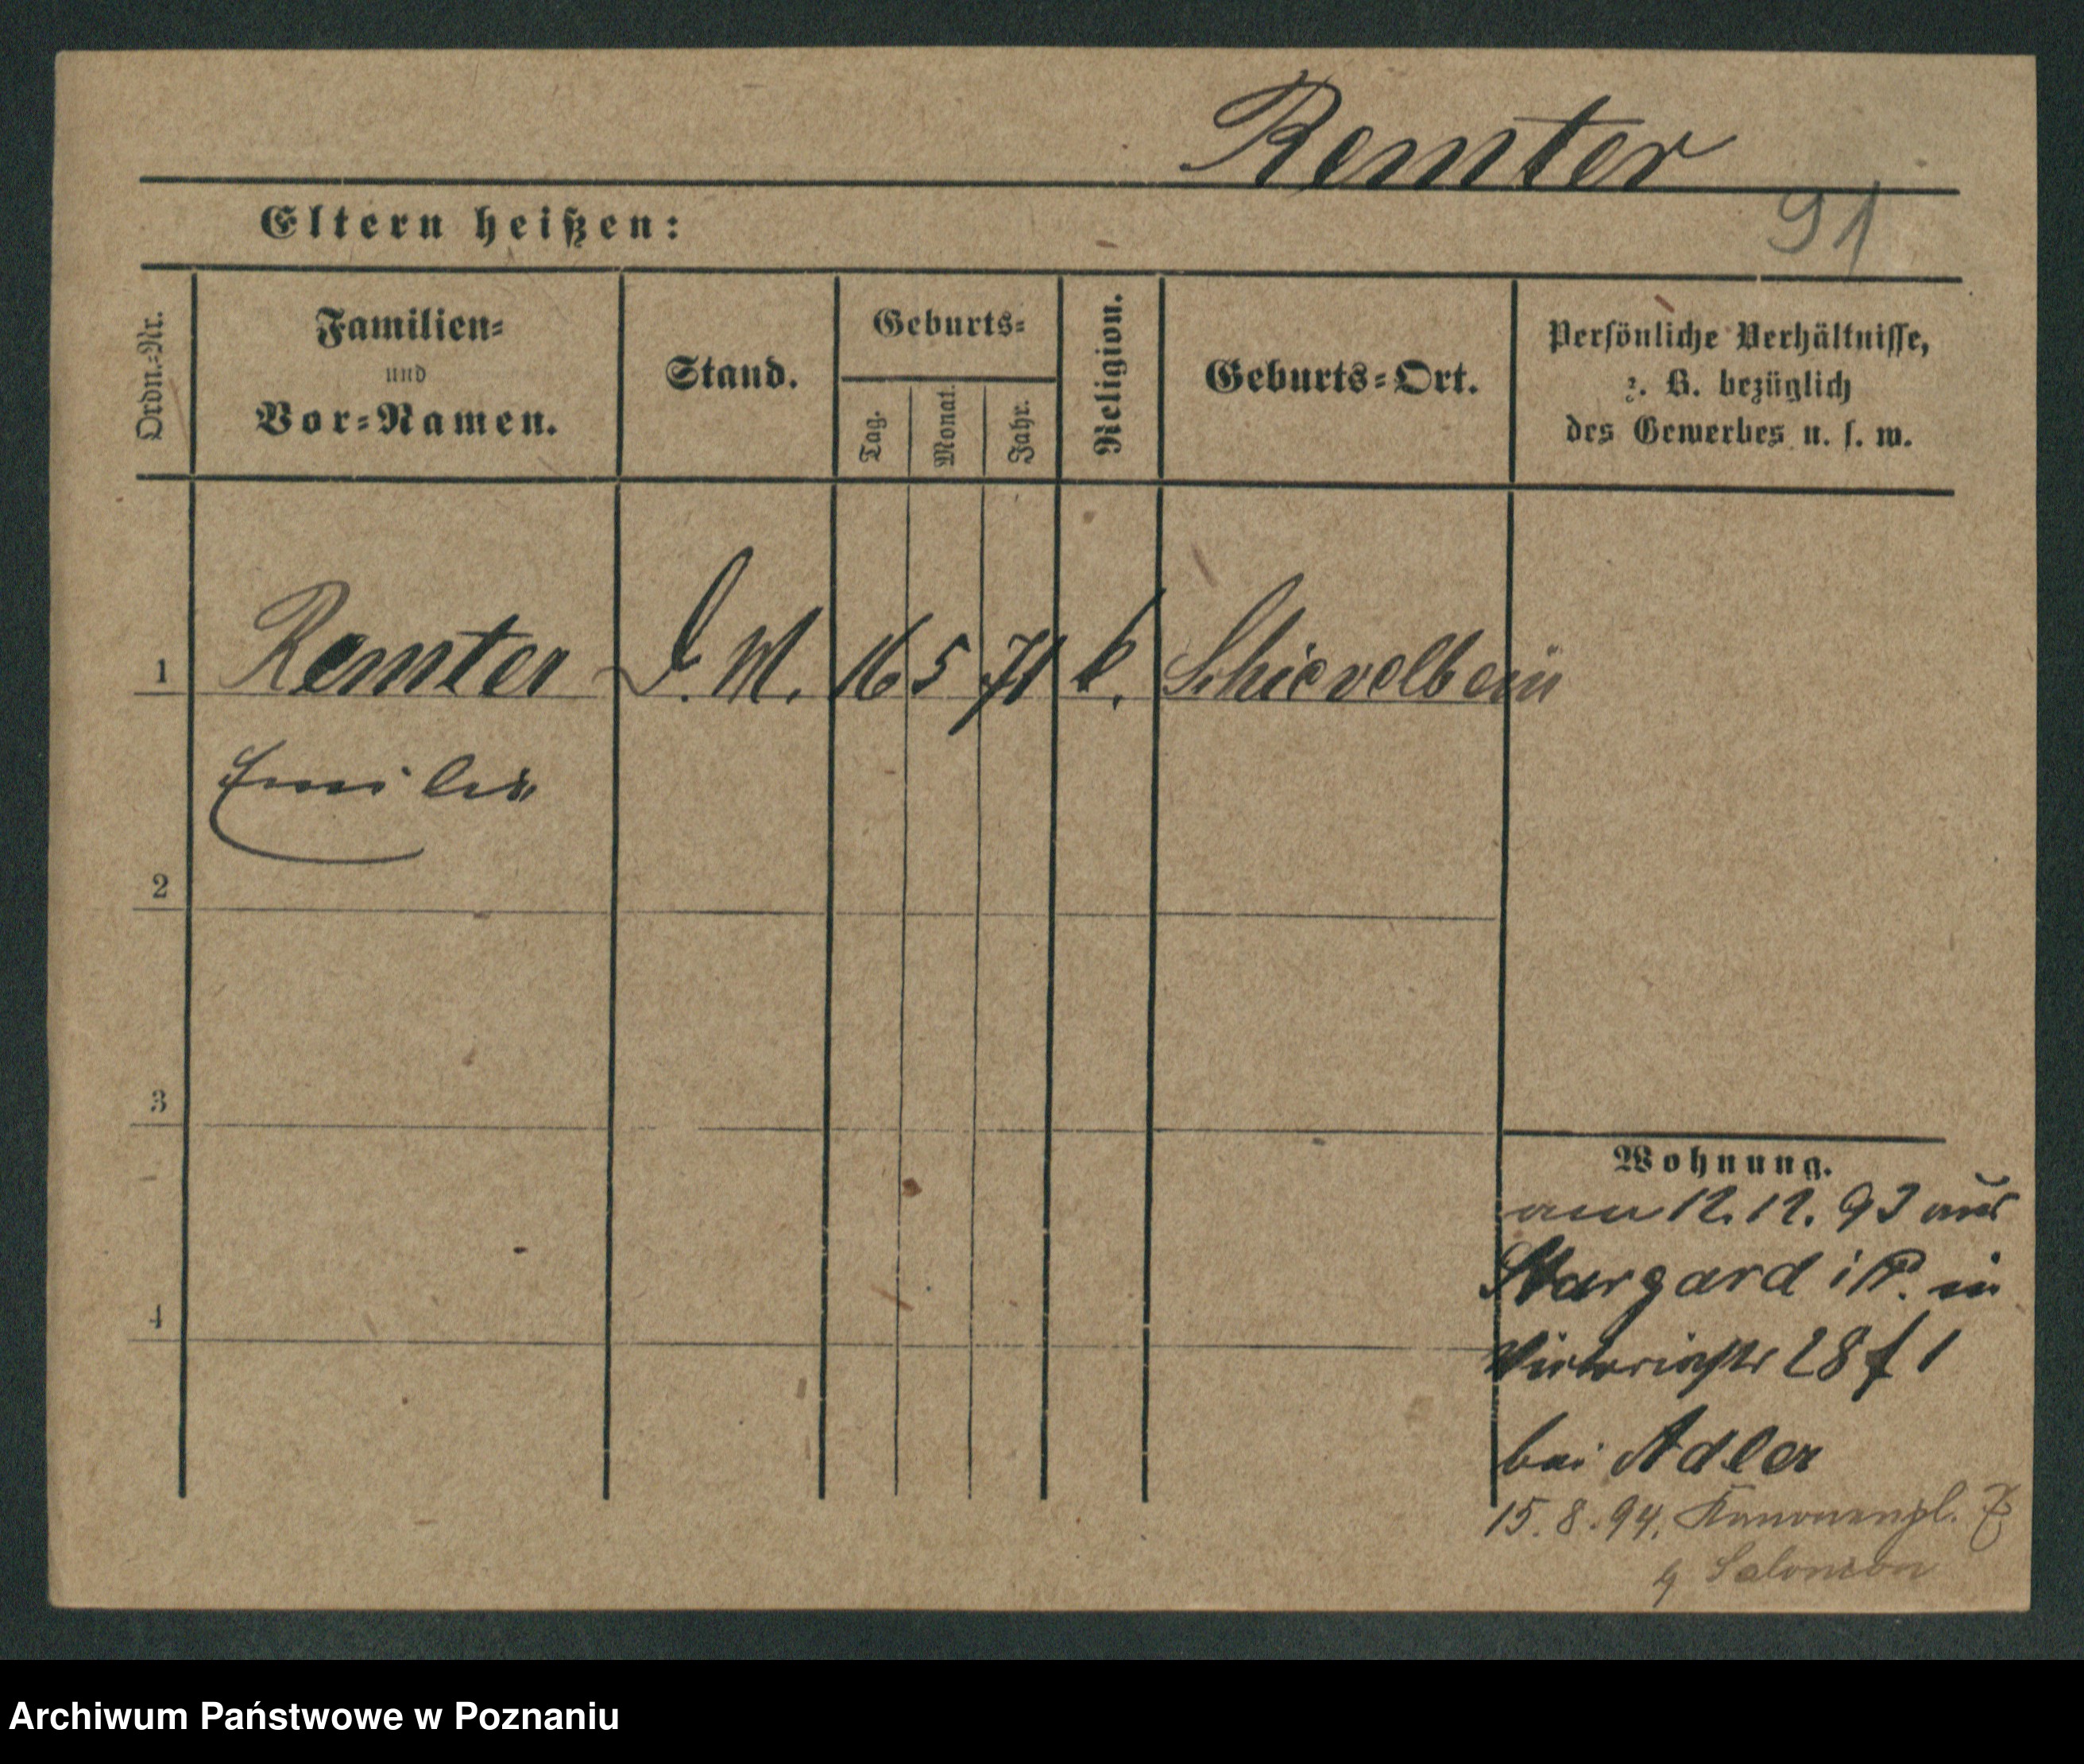 Remter
91
Eltern heißen:
Ordn.-Nr.
Familien-
und
Vor-Namen.
Stand.
Geburts-
Tag.
Monat.
Jahr.
Religion.
Geburts-Ort.
Persönliche Verhältnisse,
z. B. bezüglich
des Gewerbes u. s. w.
1 Remter D. M. 16 5 71 k. Schievelbein
Emilie
2
3
4
Wohnung.
am 12. 12. 93 aus
Stargard i P. in
Victoriastr 28 f 1
bei Adler
15. 8. 94. Kanonenpl.
Salomon
Archiwum Państwowe w Poznaniu